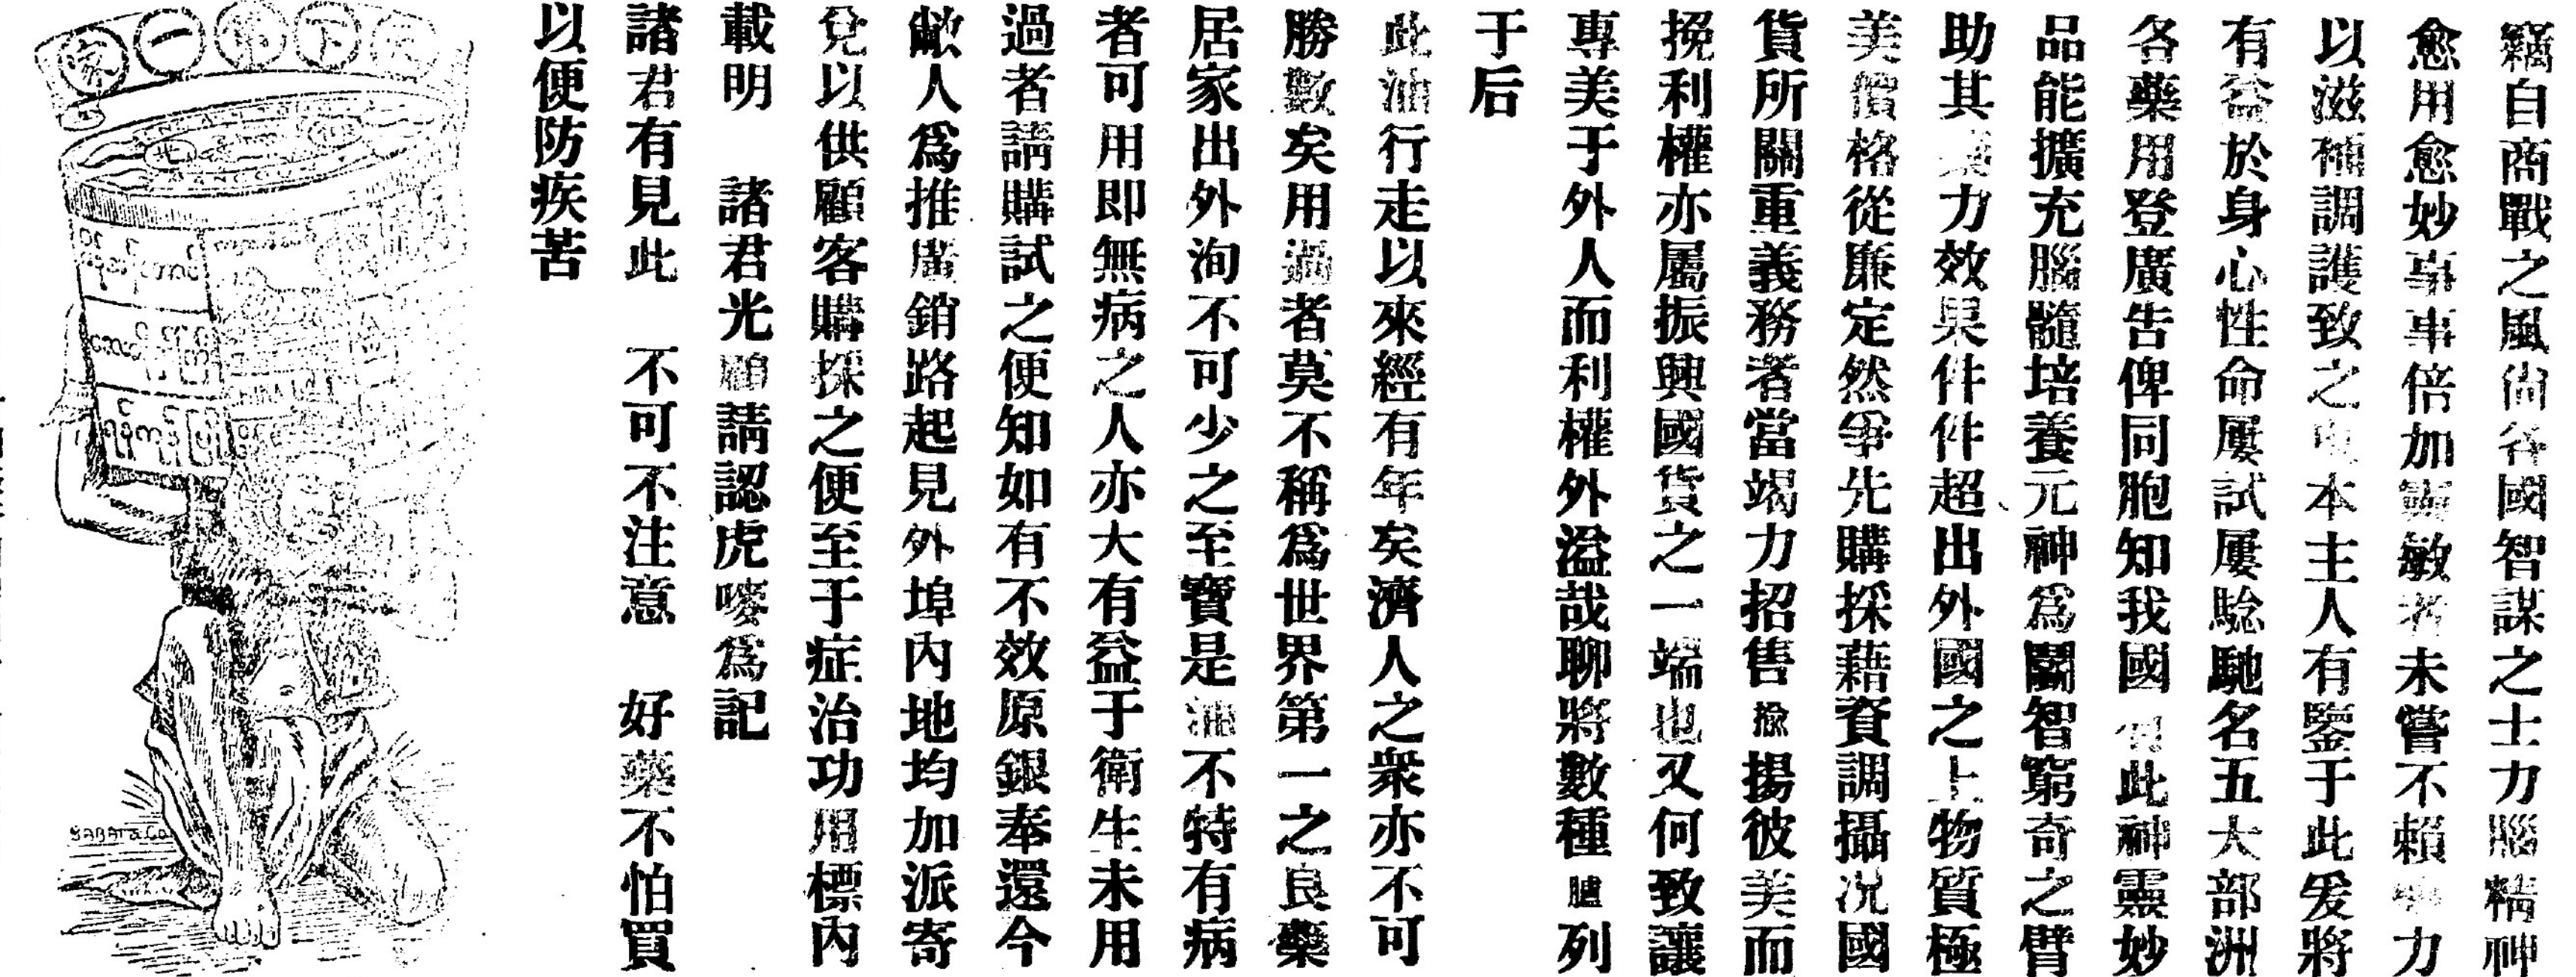 竊自商戰之風尙各國智謀之士力腦精神
愈用愈妙事事倍加靈敏者未嘗不賴 力
以滋補調護致之 本主人有鑒于此爰將
有益於身心性命屢試屢騐馳名五大部洲
各藥用登廣告俾同胞知我國有此神靈妙
品能擴充腦髓培養元神爲鬭智窮奇之臂
助其藥力效果件件超出外國之上物質極
美價格從廉定然爭先購採藉資調攝况國
貨所關重義務者當竭力招售 揚彼美而
挽利權亦屬振興國貨之一端也又何致讓
專美于外人而利權外溢哉聊將數種臚列
于后
此油行走以來經有年矣濟人之衆亦不可
勝數矣用過者莫不稱爲世界第一之良藥
居家出外洵不可少之至寶是油不特有病
者可用即無病之人亦大有益于衛生未用
過者請購試之便知如有不效原銀奉還今
敝人爲推廣銷路起見外埠內地均加派寄
兌以供顧客購採之便至于症治功用標內
載明 諸君光顧請認虎嘜爲記
諸君有見此 不可不注意 好藥不怕買
以便防疾苦
天下第一家